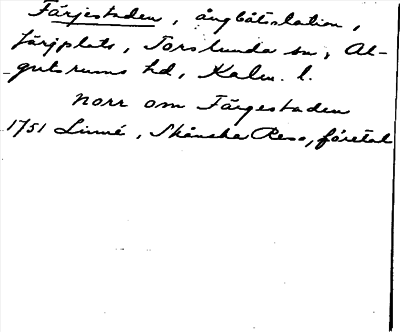 Färjestaden, ångbåtstation,
färjplats, Torslunda sn, Al-
gutsrums hd, Kalm. l.
Norr om Färgestaden
1751 Linné, Skånska Resa, företal